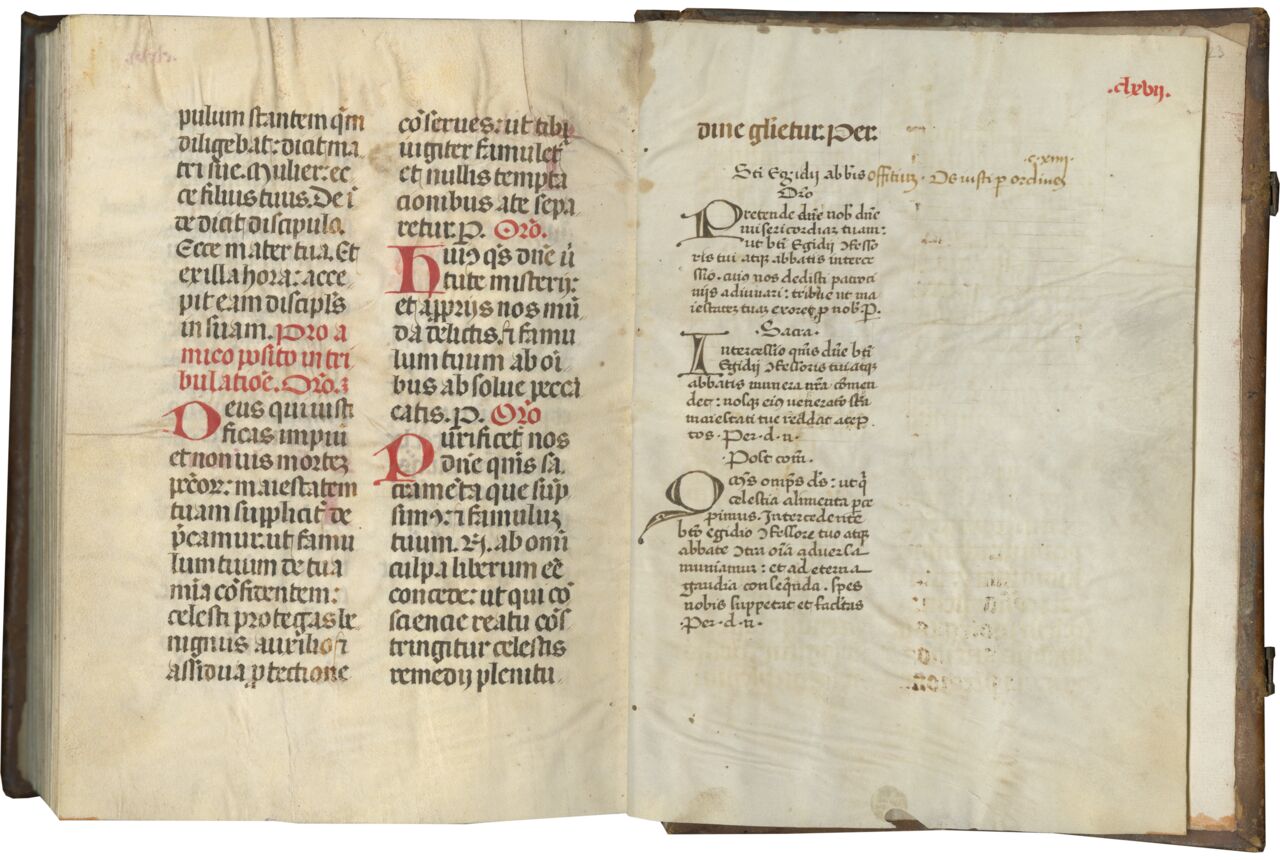 pulum stantem q̄m
diligebat: dicit ma
tri sue. Mulier: ec
ce filius tuus. De ī
de dicit discipulo.
Ecce mater tua. Et
ex illa hora: acce
pit eam discipl̄s
in suam. Pro a
mico posito in tri
bulatiōe. Orō.
Deus qui iusti
ficas impiū
et non vis mortez
pctōr: maiestatem
tuam suppliciter de
p̄camur. ut famu
lum tuum de tua
mīa cōfidentem:
celesti protegas be
nignus auxilio: ⁊
assidua ꝓtectione
cōserues: ut tibi
iugiter famulet̄
et nullis tempta
cionibus a te sepa
retur. P. Orō.
Huiꝰ q̄s dn̄e ū
tute misterij:
et a ꝓprijs nos mū
da delictis. ⁊ famu
lum tuum ab oī
bus absolue pecca
catis. P. Orō
Purificet nos
dn̄e qm̄s sa
cramēta que sūp
simꝰ: ⁊ famuluz
tuum. N. ab omī
culpa liberum eē
concede: ut qui cō
sciencie reatu cōs
tringitur celestis
remedij plenitu
.clxvij.
dine gl̄ietur. Per.
c. xiiij.
Sc̄i Egidij abb̄is offitiuz. Os iusti ꝑ ordinez
Orō
Pretende dn̄e nob̄ dn̄e
misericordiaz tuam:
ut bt̄i Egidij ꝯfesso
ris tui atqꝫ abbatis interce
ssio. cuiꝰ nos dedisti patroci
nijs adiuuari: tribue ut ma
iestatez tuaz exoret ꝑ nob̄. P.
. Sacra .
Intercessio qm̄s dn̄e bt̄i
Egidij ꝯfessoris tui atqꝫ
abbatis munera nr̄a cōmen
det: nosqꝫ eiꝰ veneratō sc̄tā
maiestati tue reddat accep
tos. Per. d. n.
. Post com̄.
Q̄s omp̄s ds̄: ut q̄
celestia alimenta ꝑce
pimus. Intercedente
bt̄o Egidio ꝯfessore tuo atqꝫ
abbate ꝯtra oīa aduersa
muniamur: et ad eterna
gaudia conseq̄nda. spes
nobis suppetat et facl̄tas
. Per. d. n.